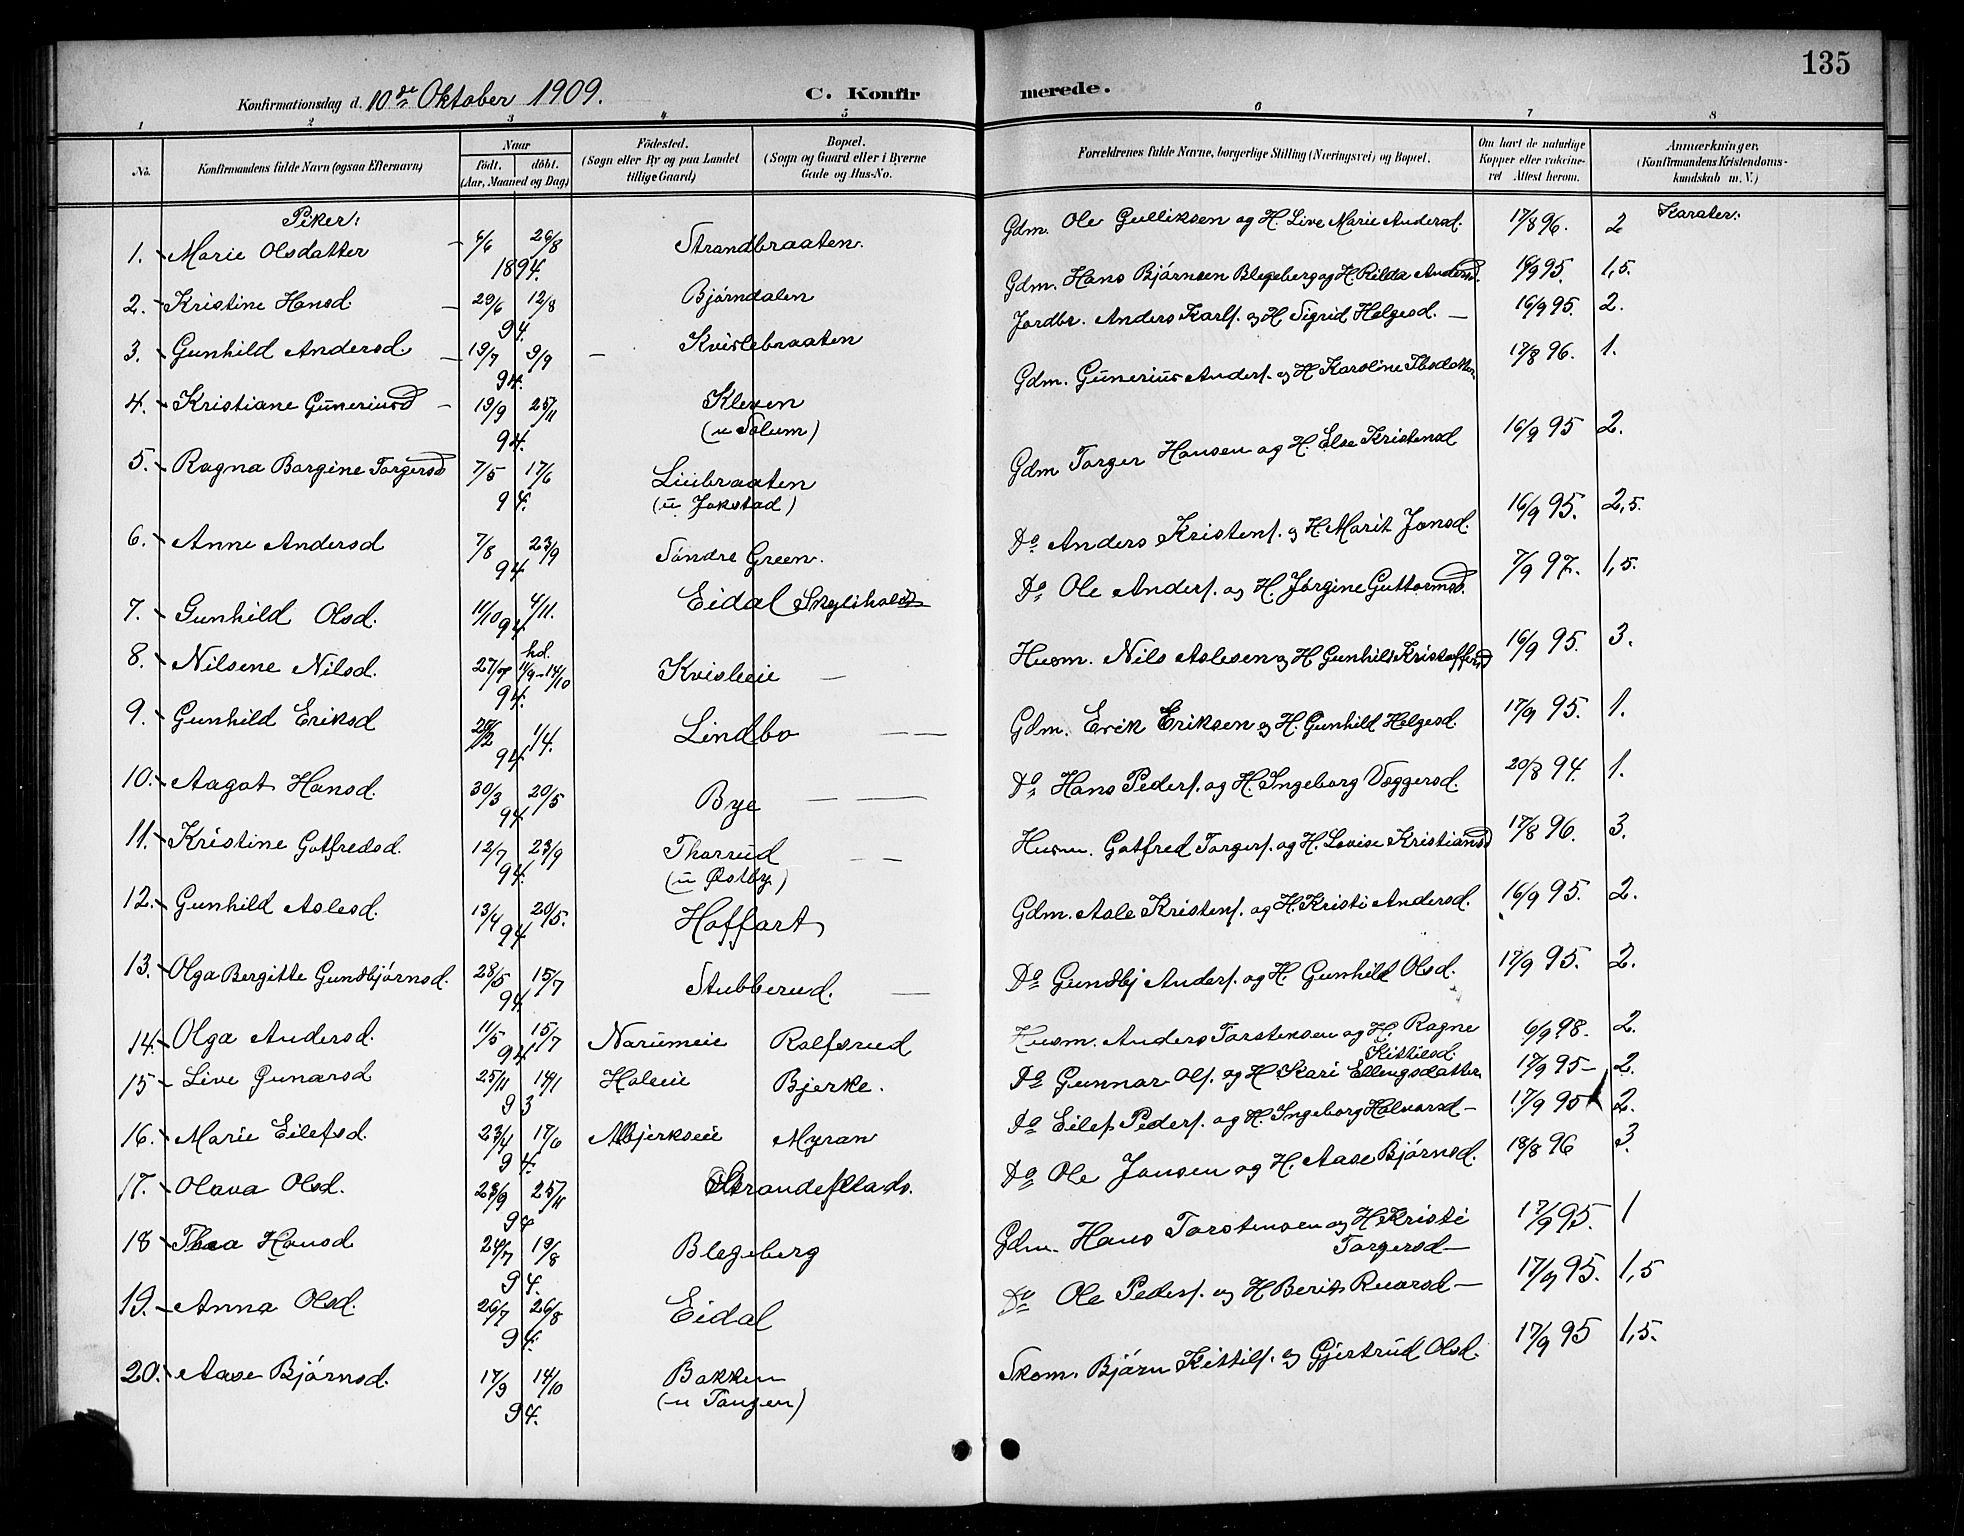 135
Konfirmationsdag d. 10de Oktober 1909. C. Konfirmerede.
1 2 3 4 5 6 7 8
No. Konfirmandens fulde Navn (ogsaa Efternavn) Naar födt. döbt. (Aar, Maaned og Dag) Födested. (Sogn eller By og paa Landet tillige Gaard) Bopæl. (Sogn og Gaard eller i Byerne Gade og Hus-No. Forældrenes fulde Navne, borgerlige Stilling (Næringsvei) og Bopæl. Om havt de naturlige Kopper eller vakcineret Attest herom. Anmærkninger, (Konfirmandens Kristendomskundskab m. V.)
Piker: Karater:
1. Marie Olsdatter 6/6 26/8 1894. Strandbraaten. Gdm. Ole Gulliksen og H. Live Marie Andersd. 17/8 96. 2
2. Kristine Hansd. 29/6 12/8 94. Bjørndalen Gdm. Hans Bjørnsen Blegeberg og H. Rilda Andersd. 16/9 95. 1,5.
3. Gunhild Andersd. 19/7 9/9 94. Kvislebraaten Jordbr. Anders Karls. og H. Sigrid Helgesd. 16/9 95. 2.
4. Kristiane Guneriusd 19/9 25/11 94. Kleven (u Solum) Gdm. Gunerius Anders. og H Karoline 17/8 96. 1.
5. Ragna Bargine Torgersd 7/5 17/6 94. Liubraaten (u Jokstad) Gdm Torger Hansen og H. Else Kristensd 16/9 95 2.
6. Anne Andersd 7/8 23/9 94 Søndre Green. Do Anders Kristens. og H Marit Jonsd. 16/9 95. 2,5.
7. Gunhild Olsd. 11/10 4/11. 94. Eidal Do Ole Anders. og H. Jørgine Guttormsd. 7/9 97. 1,5.
8. Nilsene Nilsd. 27/8 hd. 11/9 - 14/10 94. Kvisleie Husm. Nils Aslesen og H Gunhild Kristoffersd 16/9 95. 3.
9. Gunhild Eriksd 1/4. 94 Lindbo Gdm. Erik Eriksen og H. Gunhild Helgesd. 17/9 95. 1.
10. Aagot Hansd. 30/3 20/5 94 Bye Do Hans Peders. og H. Ingeborg Væggersd. 20/8 94. 1.
11. Kristine Gotfredsd. 12/7 23/9 94. Thorrud (u Østby) Husm. Gotfred Torgers. og H. Lovise Kristiansd 17/8 96. 3.
12. Gunhild Aslesd. 13/4 20/5. 94 Hoffart Gdm. Asle Kristens. og H. Kristi Andersd. 16/9 95. 2.
13. Olga Bergitte Gundbjørnsd. 28/5 15/7 94. Stubberud. Do Gundbj Anders. og H. Gunhild Olsd. 17/9 95. 2.
14. Olga Andersd. 11/5 15/7 94 Narumeie Rolfsrud Husm. Anders Torstensen og H. Ragne Kittilsd. 6/9 98. 2.
15 Live Gunarsd 25/11 14/1 93 Holeie Bjerke. Do Gunnar Ols. og H Kari Ellengsdatter 17/9 95 2.
16. Marie Eilefsd. 23/4 17/6 94. Bjerkseie Myran Do Eilef Peders. og H. Ingeborg Halvorsd 17/9 95 2.
17. Olava Olsd. 23/9 25/11 94 Do Ole Jonsen og H. Aase Bjørnsd. 18/8 96 3.
18 Thea Hansd 24/7 19/8 94. Blegeberg Gdm. Hans Torstensen og H Kristi Torgersd 17/9 95. 1
19. Anna Olsd. 26/7 26/8 94. Eidal Do Ole Peders. og H Berit Roarsd 17/9 95. 1,5
20. Aase Bjørnsd. 17/9 14/10 94. Bakken (u Tangen) Skom. Bjørn Kittils. og Gjertrud Olsd. 17/9 95 1,5.